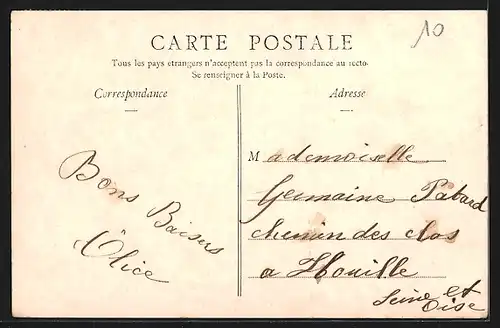 10
CARTE POSTALE
Tous les pays etrangers n'acceptent pas la correspondance au recto
Se renseigner à la Poste.
Correspondance
Adresse
Bons Baisers
Alice
Mademoiselle
Germaine Pabard
chemin des clos
a Houille
Seine et
Oise